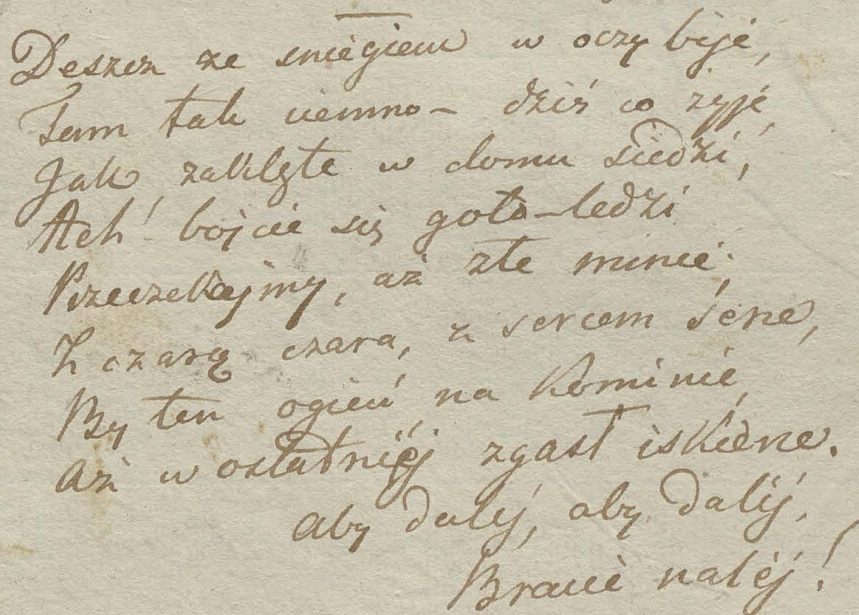 Deszcz ze sniegiem w oczy bije,
Tam tak ciemno – dziś co żyje,
Jak zaklęte w domu siedzi,
Ach! bojcie się goło-ledzi
Przeczekajmy, aż złe minie;
Z czarą czara, z sercem serce,
By ten ogień na kominie,
Aż w ostatniéj zgasł iskierce.
Aby daléj, aby daléj,
Bracie naléj!